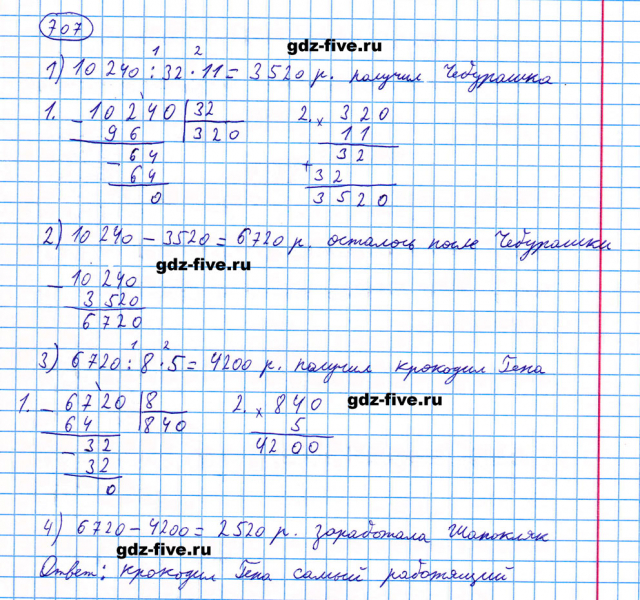 707
gdz-five.ru
1 2
1) 10 240 : 32 · 11 = 3 520 р. получил Чебурашка.
1. - 10 240 | 32 2. × 320
96 320 11
- 64 + 32
64 32
0 3520
2) 10 240 - 3520 = 6720 р. осталось после Чебурашки
gdz-five.ru
- 10 240
3 520
6720
1 2
3) 6720 : 8 · 5 = 4200 р. получил крокодил Гена
gdz-five.ru
1. - 6720 | 8 2. × 840
64 840 5
- 32 4200
32
0
4) 6720 - 4200 = 2520 р. заработала Шапокляк
gdz-five.ru
Ответ: крокодил Гена самый работящий